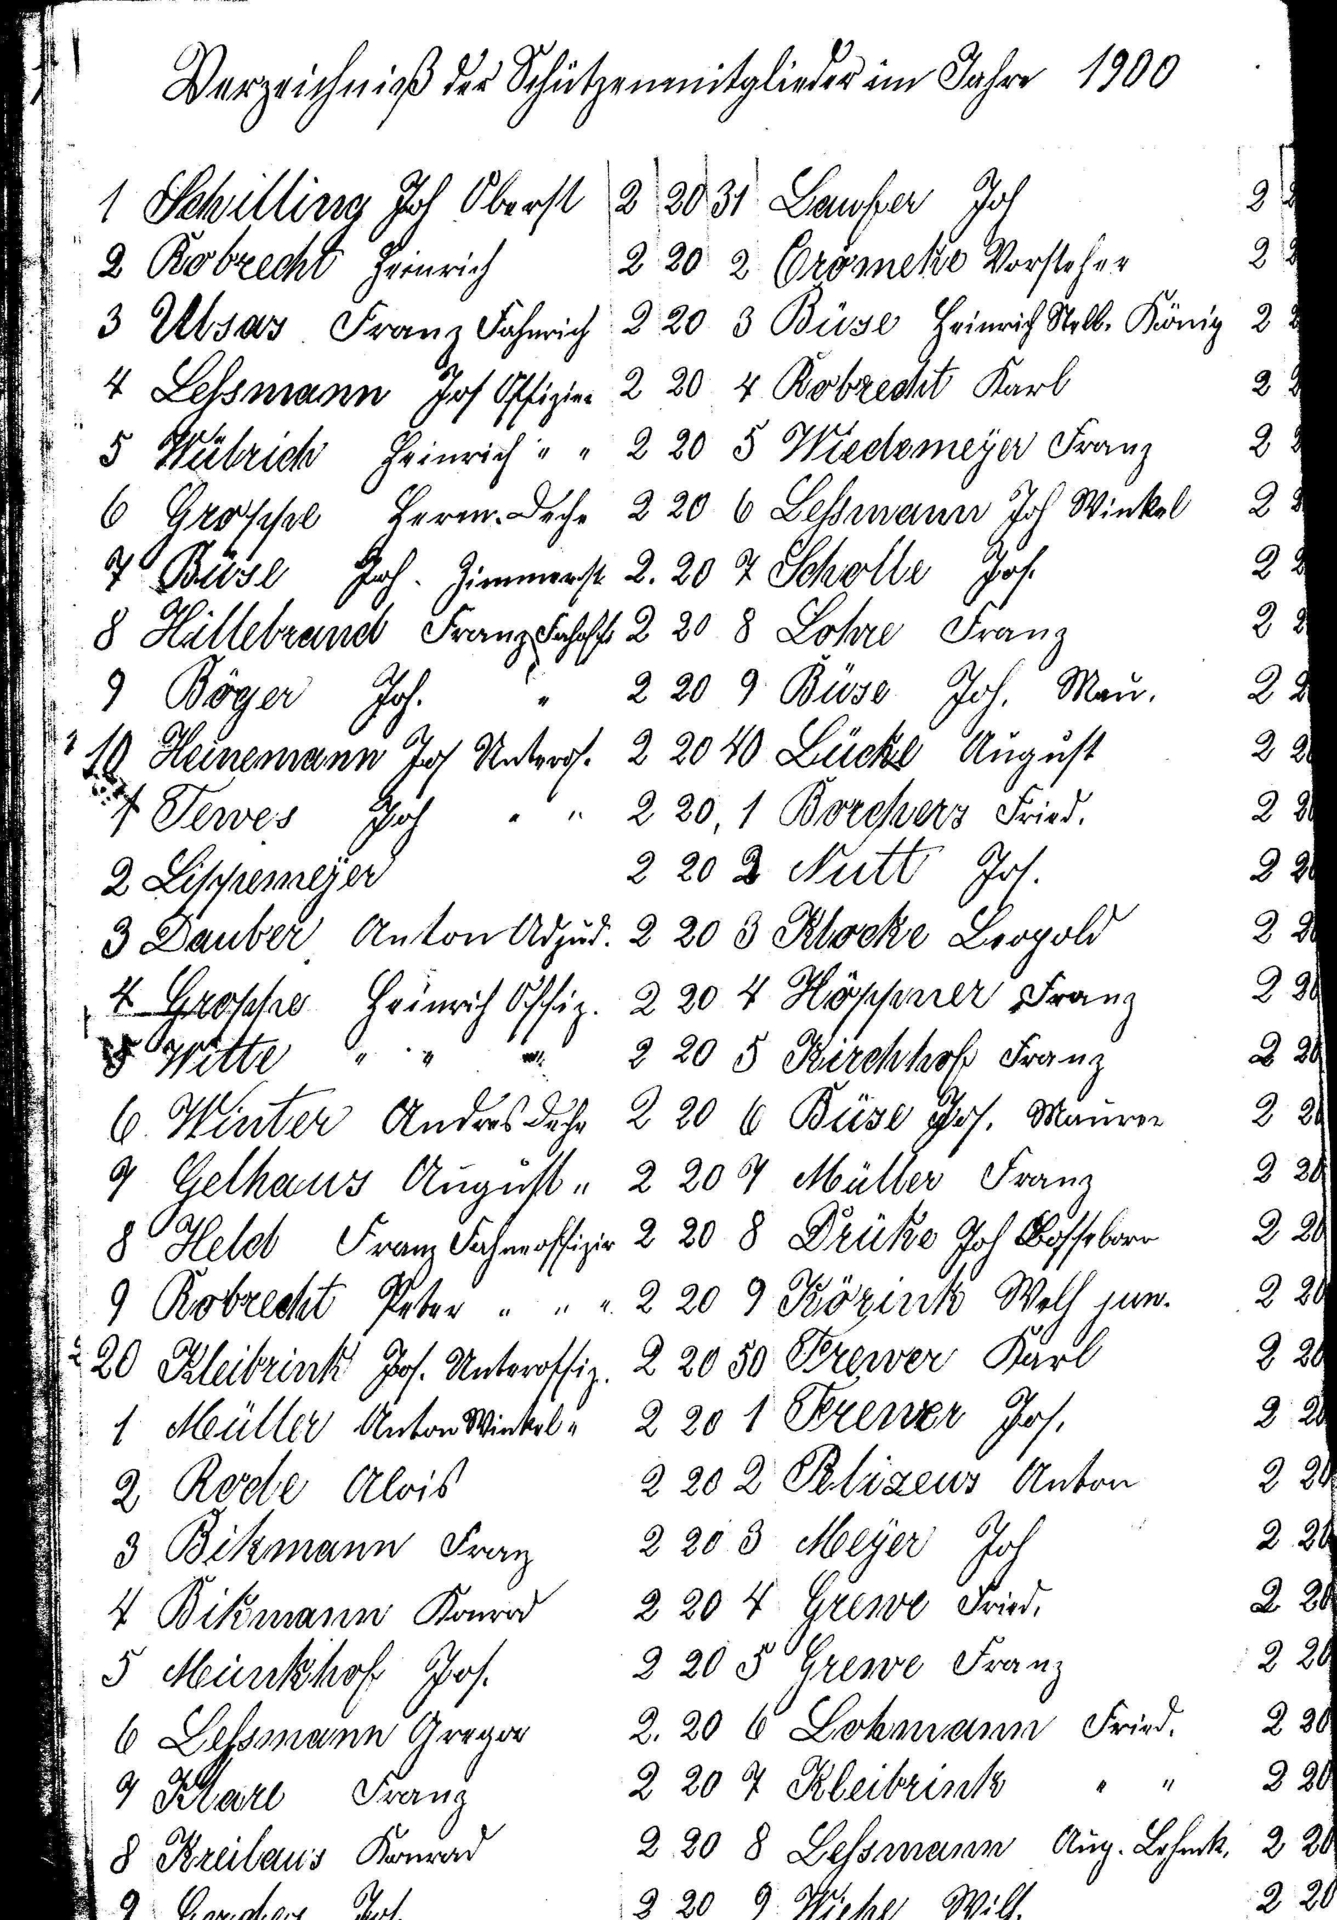 Verzeichniß der Schützenmitglieder im Jahre 1900
1 Schilling Joh Oberst 2 20
2 Kobrecht Heinrich 2 20
3 Ulsas Franz Fähnrich 2 20
4 Leßmann Jos Offizier 2 20
5 Wübrich Heinrich " " 2 20
6 Groppe Herm. Deche 2 20
7 Büse Joh. Zimmerst 2. 20
8 Hillebrand Franz 2 20
9 Böger Joh. " 2 20
10 Heinemann Jos Unterof. 2 20
1 Tewes Joh " " 2 20
2 Lippemeÿer 2 20
3 Dauber Anton Adjud. 2 20
4 Groppe Heinrich Offiz. 2 20
5 Witte " " " 2 20
6 Winter Andres Deche 2 20
7 Gelhaus August " 2 20
8 Held Franz Fahneoffizir 2 20
9 Kobrecht Peter " " " 2 20
20 Kleibrink Jos. Unteroffiz. 2 20
1 Müller Anton Winkel " 2 20
2 Rode Alois 2 20
3 Bikmann Franz 2 20
4 Bikmann Konrad 2 20
5 Münkhof Jos. 2 20
6 Leßmann Gregor 2. 20
7 Klare Franz 2 20
8 Kreilaus Konrad 2 20
9 Jos. 2 20
31 Laufer Joh 2 2
2 Crömeke Vorsteher 2 2
3 Büse Heinrich Stellv. König 2 2
4 Kobrecht Karl 2 2
5 Wiedemeÿer Franz 2 2
6 Leßmann Joh Winkel 2 2
7 Scholle Jos. 2 2
8 Lohre Franz 2 2
9 Büse Joh. Mau. 2 2
40 Lücke August 2 20
1 Borchers Fried. 2 20
2 Nutt Jos. 2 20
3 Klocke Leopold 2 20
4 Höppner Franz 2 20
5 Kirchhof Franz 2 20
6 Büse Jos. Maurer 2 20
7 Müller Franz 2 20
8 Drüke Joh Bosseborn 2 20
9 Körink Welh jun. 2 20
50 Frewer Karl 2 20
1 Frewer Jos. 2 20
2 Plizeus Anton 2 20
3 Meÿer Joh 2 20
4 Grewe Fried. 2 20
5 Grewe Franz 2 20
6 Lohmann Fried. 2 20
7 Kleibrink " " 2 20
8 Leßmann Aug. 2 20
9 Wiehe Wilh. 2 20